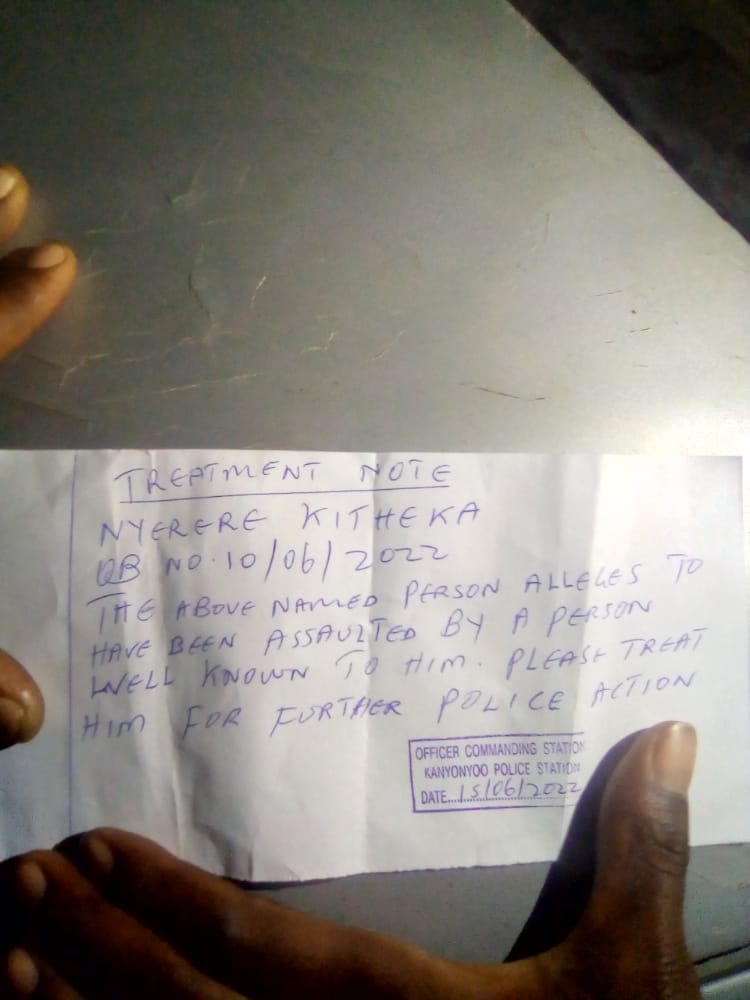 TREATMENT NOTE
NYERERE KITHEKA
OB NO. 10/06/2022
THE ABOVE NAMED PERSON ALLEGES TO
HAVE BEEN ASSAULTED BY A PERSON
WELL KNOWN TO HIM. PLEASE TREAT
HIM FOR FURTHER POLICE ACTION
OFFICER COMMANDING STATION
KANYONYOO POLICE STATION
DATE....15/06/2022